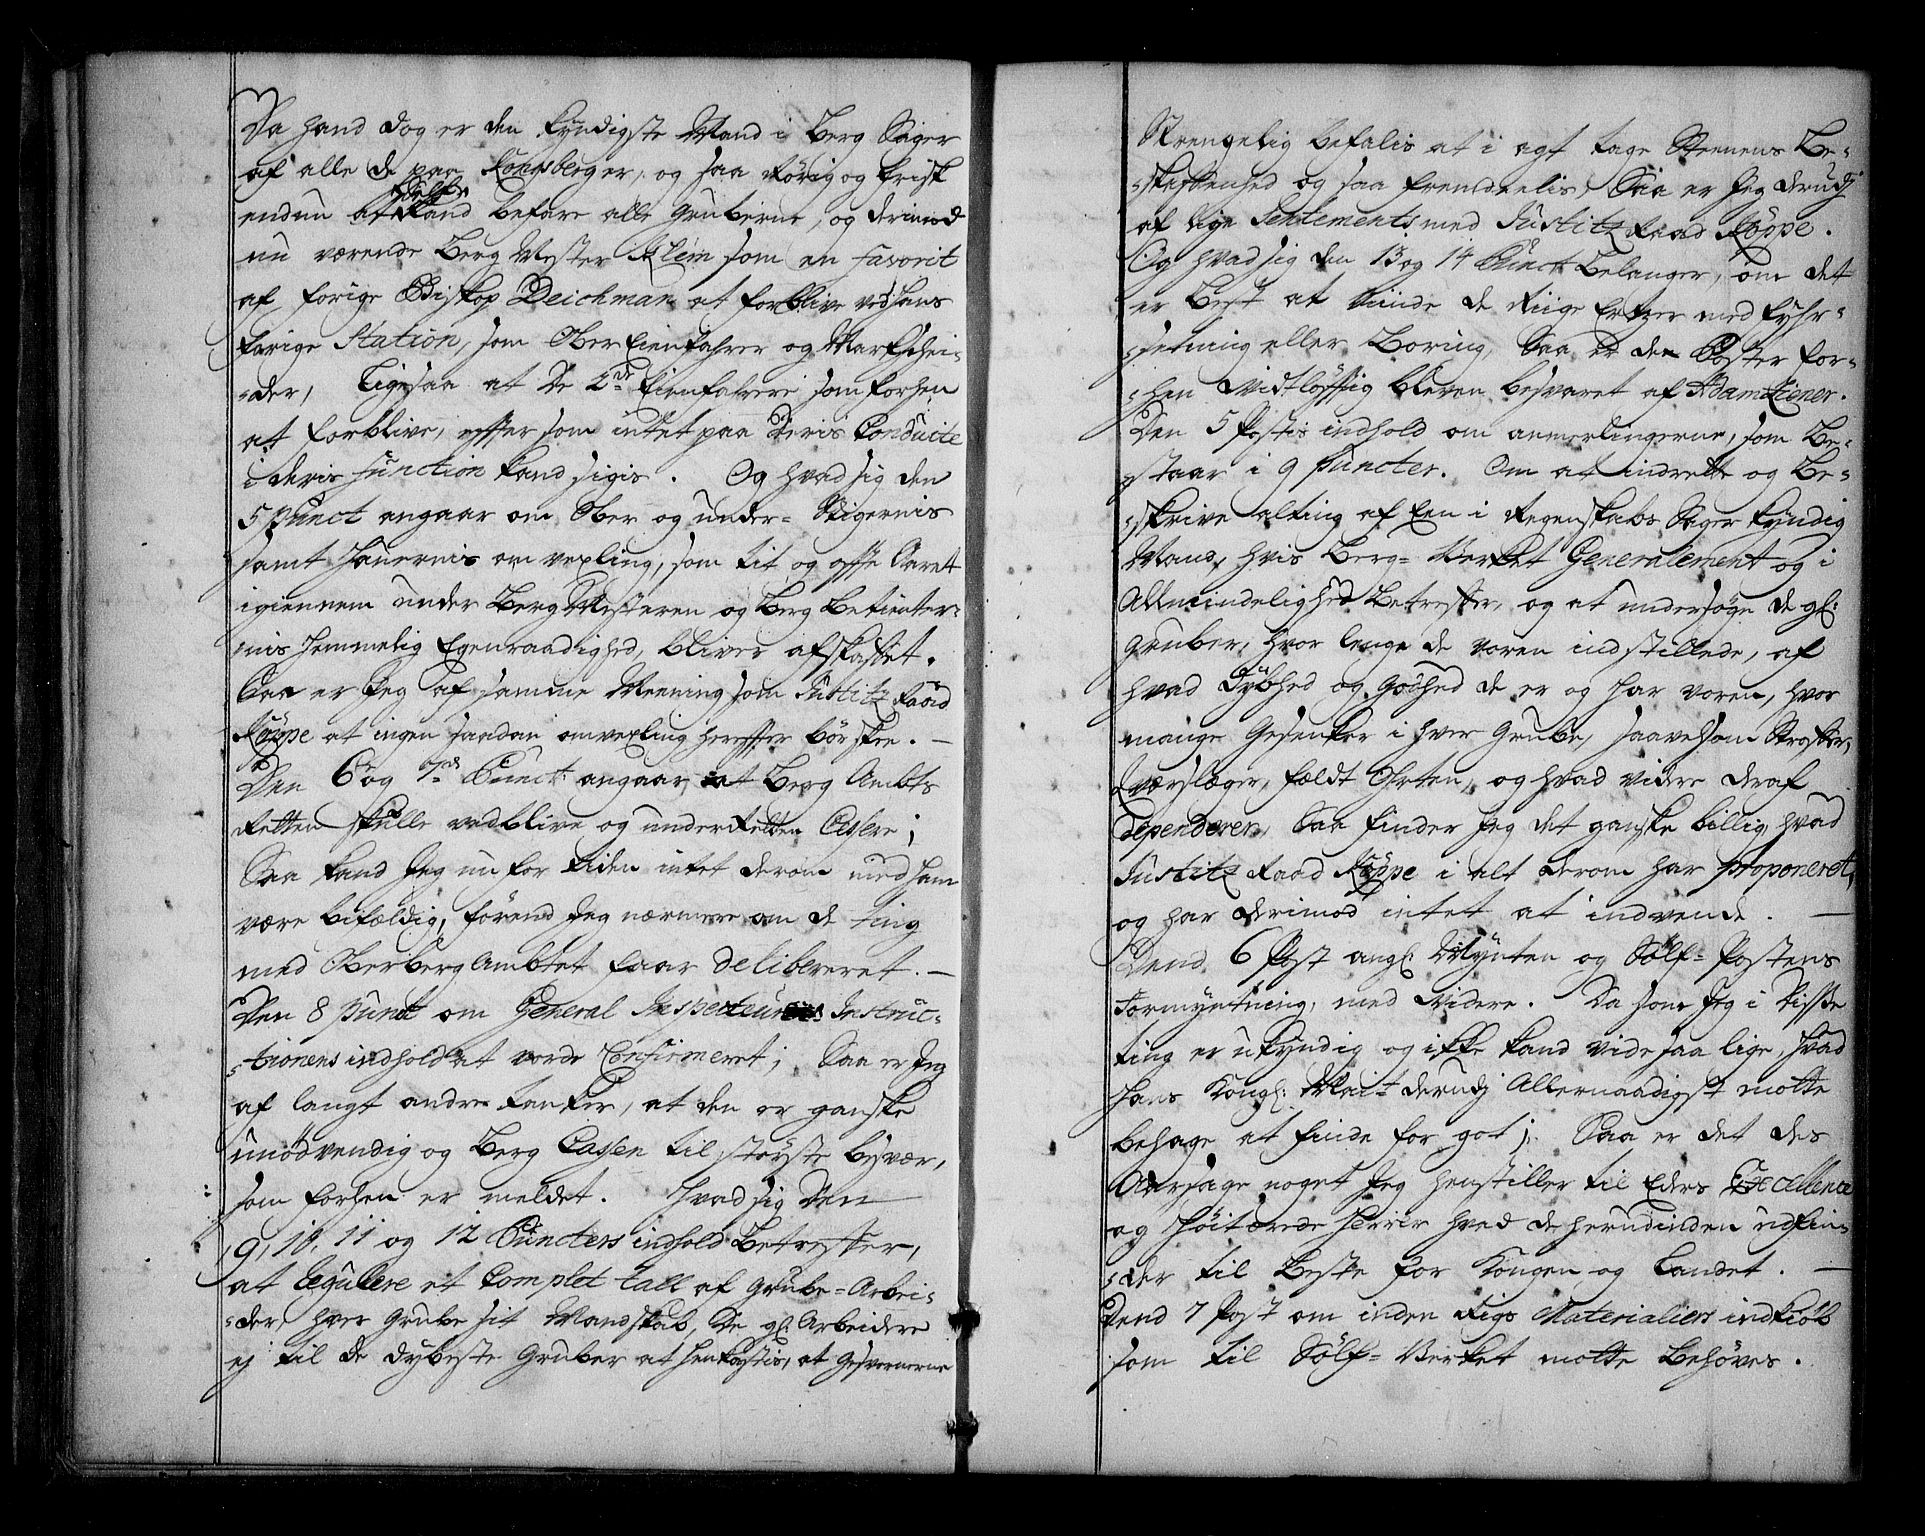 Da hand dog er den kyndigste Mand i Berg Sager
af alle de paa Kongsberg er, og saa rörig og frisk
endnu at hand Self kand befare alle Gruberne, og derimod
nu værende Berg Mester Klem som en favorit
af forige Biskop Deichman at forblive ved hans
forige Station, som Ober Eienfahrer og Markschei-
-der, Ligesaa at De 2de Eienfahrere som forhen
at forblive, efftersom intet paa deris Conduite
i deris function kand sigis. Og hvad sig den
5 Punct angaar om Ober og under-Stigernis
samt Hauernis omvexling, som tit og offte Aaret
igiennem under Berg Mesteren og Berg Betienter-
-nis hemmelig Egenraadighed, bliver afskaffet.
Saa er Jeg af samme Meening som Justitz Raad
Köppe at ingen saadan omvexling hereffter bör skee. —
Den 6 og 7de Punct: angaar, at Berg Ambts
Retten skulle vedblive og underRetten Cessere;
Saa kand Jeg nu for tiden intet derom med ham
være bifældig, förend Jeg nærmere om de ting
med OberbergAmbtet faar delibereret. —
Den 8 Punct om General Inspecteurens Instruc-
-tionens indhold at vorde Confirmeret; Saa er Jeg
af langt andre tanker, at den er ganske
unödvendig og Berg Cassen til störste besvær,
som forhen er meldet. Hvad sig den
9, 10, 11 og 12 Puncters indhold Betreffer,
at Regulere et Complet tall af Grube-Arbei-
-der, hver Grube sit Mandskab, De gl: Arbeidere
ej til de dybeste Gruber at henkastis, at Gesvornerne
Strengelig befalis at i agt tage Steenens Be-
-skaffenhed og saa fremdeelis, Saa er Jeg derudj
af lige Sentements med Justitz Raad Köppe.
Og hvad sig den 13 og 14 Punct belanger, om det
er Best at vinde de Riige Ertzer med Fyhr-
-setning eller Boring, Saa er den Poster for-
-hen vidtlöfftig bleven besvaret af Adam Ziener.
Den 5 Postis indhold om anmerkingerne, som Be-
-staar i 9 Puncter. Om at indrette og Be-
-skrive alting af Een i Regenskabs Sager kyndig
Mand, hvis Berg-Verket Generalement og i
Almindelighed Betreffer, og at undersöge de gl:
Gruber, hvor lenge de voren indstillede, af
hvad Dybhed og Godhed de er og har voren, hvor
mange Gesenker i hver Grube, saavelsom Stroster,
Tværslæger, fældt Orten, og hvad videre deraf
dependerer, Saa finder Jeg det ganske billig, hvad
Justitz Raad Köppe i alt derom har proponeret,
og har derimod intet at indvende. —
Dend 6 Post angl: Mynten og Sölf-Postens
Formyntning, med videre. Da som Jeg i disse
ting er ukyndig og ikke kand vide saa lige, hvad
Hans Kongl: Mait: derudj Allernaadigst motte
behage at finde for got; Saa er det des
Aarsage noget Jeg henstiller til Eders Excellence
og Höitærede Herrer hvad de herudinden udfin-
-der til Beste for Kongen og Landet. —
Dend 7 Post om inden Rigs Materialiers indkiöb
som til Sölf-Verket motte Behöves.